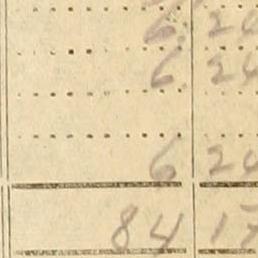 6 24
6 24
6 24
84 17